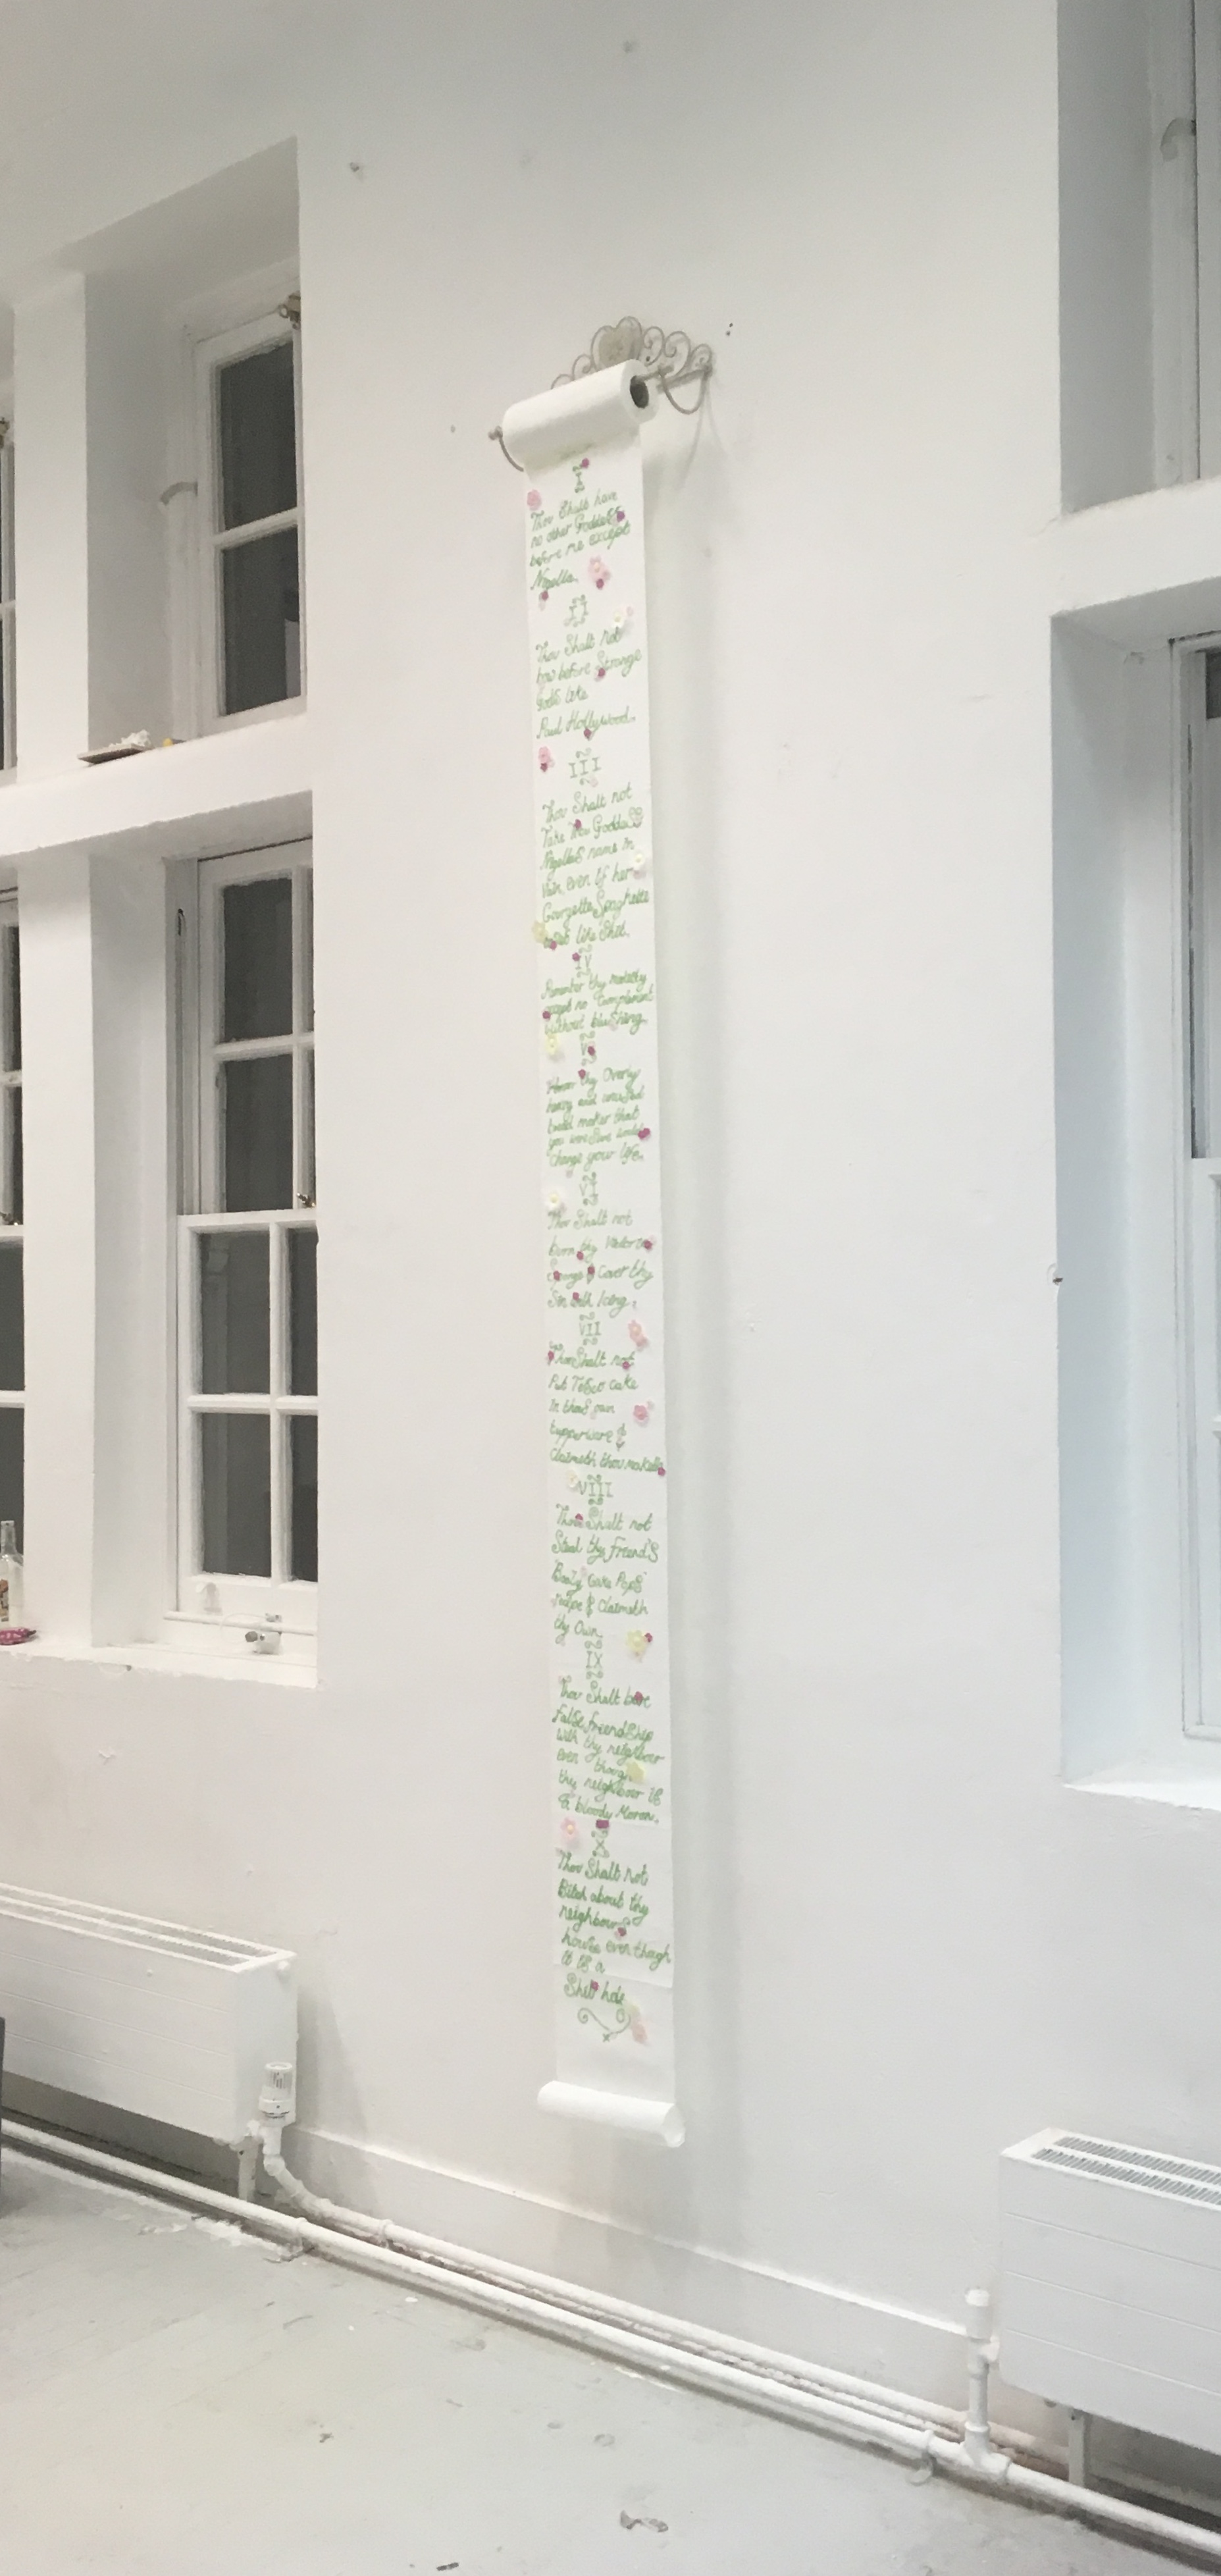 I
Thou Shalt have
no other Goddess
before me except
Nigella.
II
Thou Shalt not
bow before Strange
Gods like
Paul Hollywood.
III
Thou Shalt not
Take thou Goddess
Nigellas name in
Vain even if her
Courgette Spaghette
like Shit.
IV
Remember thy modesty
accept no Complement
without blushing.
V
Honor thy Overly
heavy and unused
bread maker that
you were Sure would
Change your life.
VI
Thou Shalt not
burn thy Victoria
Sponge & Cover thy
Sin with Icing.
VII
Thou Shalt not
Put Tesco cake
In thous own
tupperware &
Claimeth thou maketh
VIII
Thou Shalt not
Steal thy friend's
Boozy Cake Pops'
recipe & Claimeth
thy Own.
IX
Thou Shalt bare
False friendship
with thy neighbour
even though
thy neighbour is
a bloody Moron.
X
Thou Shalt not
Bitch about thy
neighbours
house even though
it is a
Shit hole